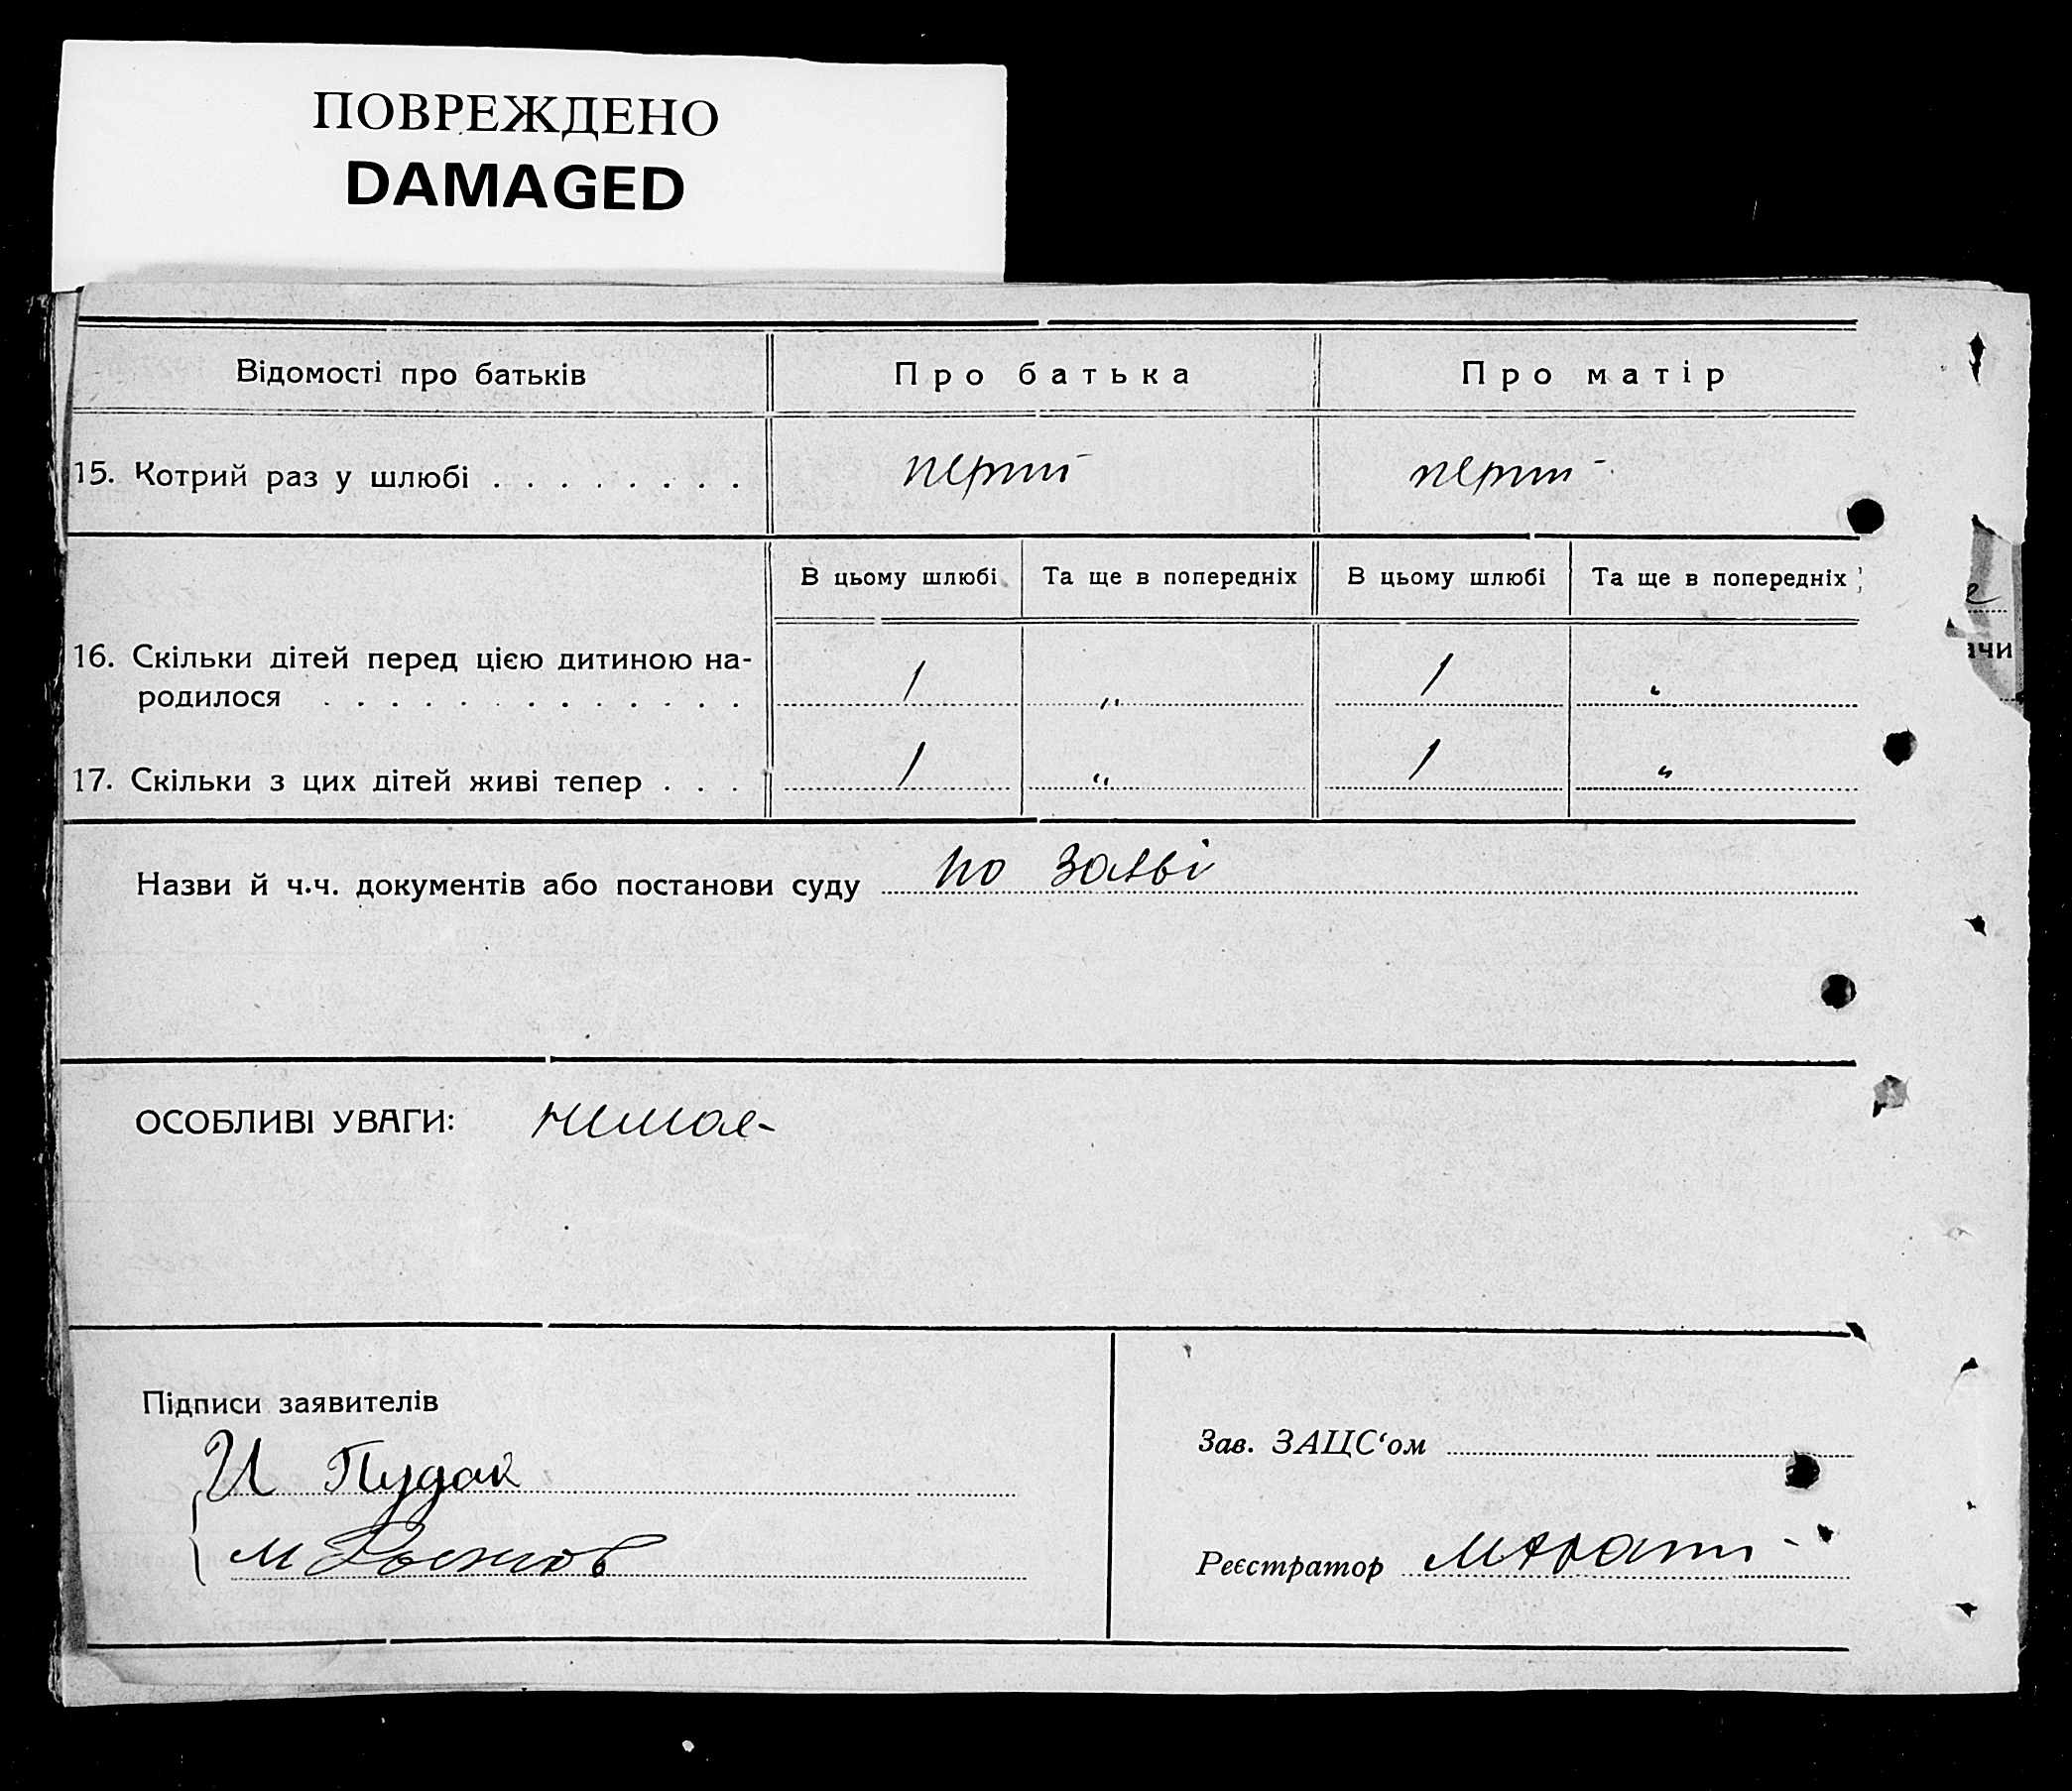 ПОВРЕЖДЕНО
DAMAGED
Відомості про батьків Про батька Про матір
15. Котрий раз у шлюбі . . . . . . . . перший перший
В цьому шлюбі Та ще в попередніх В цьому шлюбі Та ще в попередніх
16. Скільки дітей перед цією дитиною на-
родилося . . . . . . . . . . . . . 1 „ 1 „
17. Скільки з цих дітей живі тепер . . . 1 „ 1 „
Назви й ч.ч. документів або постанови суду по заяві
ОСОБЛИВІ УВАГИ: немає
Підписи заявителів
И Пудак
М
Зав. ЗАЦС‘ом
Реєстратор
ачи